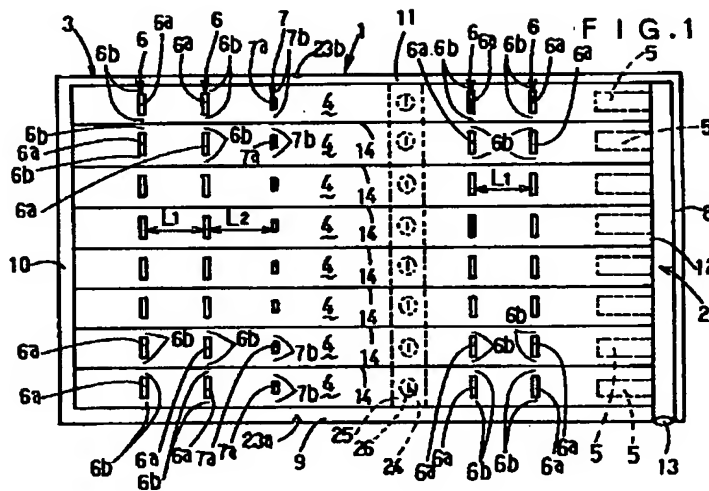 FIG.1
3 6b 6 6a 6a 6 6b 7a 7 7b 23b 1 11 6a 6b 6 6a 6b 6 6a 5
6b 4
6b 6a 6b 6a 6b 7a 7b 4 14 6a 6b 6a 5
4 14 L1 8
10 L1 L2 4 14 12
4 14 2
4 14 6b
6a 6b 6b 7b 4 14 6b 6a 5
6a 7b 4 14 5
6b 6a 6b 6a 7a 7a 23a 9 25 26 24 6a 6a 6b 6b 6a 6a 5 5 13